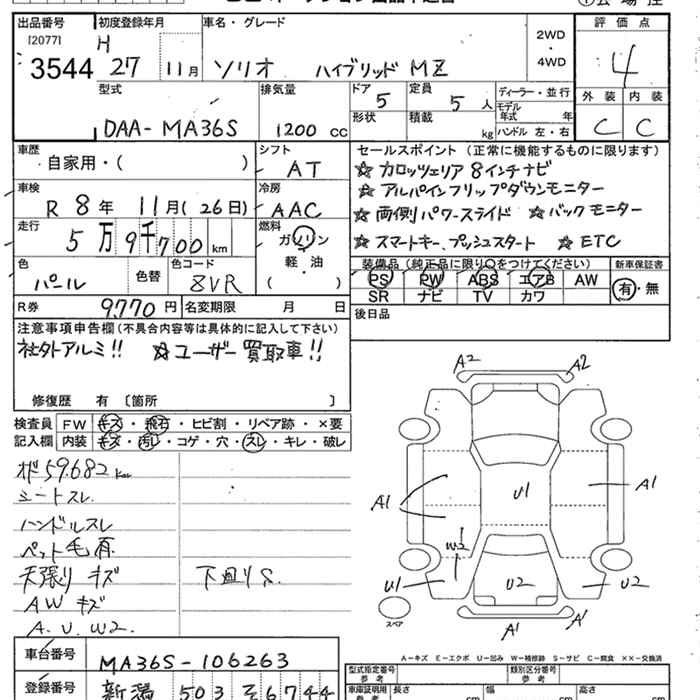 出品番号 初度登録年月 車名・グレード 2WD・4WD 評価点
[2077] H
3544 27 11月 ソリオ ハイブリッド MZ 4
型式 排気量 ドア 定員 ディーラー・並行 外装 内装
DAA-MA36S 1200 cc 5 5人 モデル年式 年 C C
形状 積載 kg ハンドル 左・右
車歴 シフト セールスポイント (正常に機能するものに限ります)
自家用・( ) AT ☆ カロッツェリア 8インチナビ
車検 冷房 ☆ アルパインフリップダウンモニター
R 8年 11月(26日) AAC ☆ 両側パワースライド ☆ バックモニター
走行 燃料
5万9千700km ガソリン ☆ スマートキー、プッシュスタート ☆ ETC
軽・油
( )
色 色替 色コード 装備品(純正品に限り○をつけてください) 新車保証書
パール ZVR PS PW ABS エアB AW 有・無
SR ナビ TV カワ
R券 9770円 名変期限 月 日 後日品
注意事項申告欄(不具合内容等は具体的に記入して下さい)
社外アルミ!! ☆ユーザー買取車!!
修復歴 有 〔箇所 〕
検査員 FW キズ・飛石・ヒビ割・リペア跡・×要
記入欄 内装 キズ・汚レ・コゲ・穴・スレ・キレ・破レ
59,682 km
シートスレ
ハンドルスレ
ペット毛有
天張りキズ 下廻りS.
AWキズ
A.U.W2.
A2 A2
A1 U1 A1
W2
U1 U2 U2
A1 A1
スペア
A-キズ E-エクボ U-凹み W-補修跡 S-サビ C-腐食 ××-交換済
車台番号 MA36S-106263
型式指定番号 参考 類別区分番号 参考
登録番号 新潟 503 そ 6744
車庫証明用 参考 長さ cm 幅 cm 高さ cm